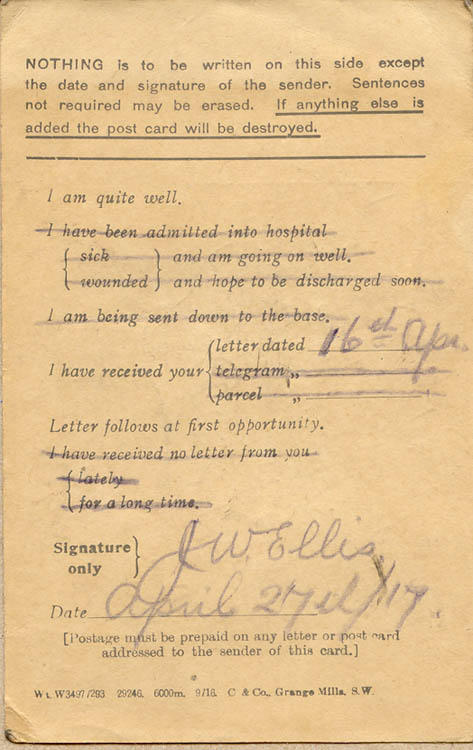 NOTHING is to be written on this side except
the date and signature of the sender. Sentences
not required may be erased. If anything else is
added the post card will be destroyed.
I am quite well.
I have been admitted into hospital
{ sick } and am going on well.
{ wounded } and hope to be discharged soon.
I am being sent down to the base.
{ letter dated 16th Apr.
I have received your { telegram „
{ parcel „
Letter follows at first opportunity.
I have received no letter from you
{ lately
{ for a long time.
Signature } J W Ellis
only
Date April 27th/17.
[Postage must be prepaid on any letter or post card
addressed to the sender of this card.]
Wt. W3497/293 29246. 6000m. 9/16. C & Co., Grange Mills, S.W.